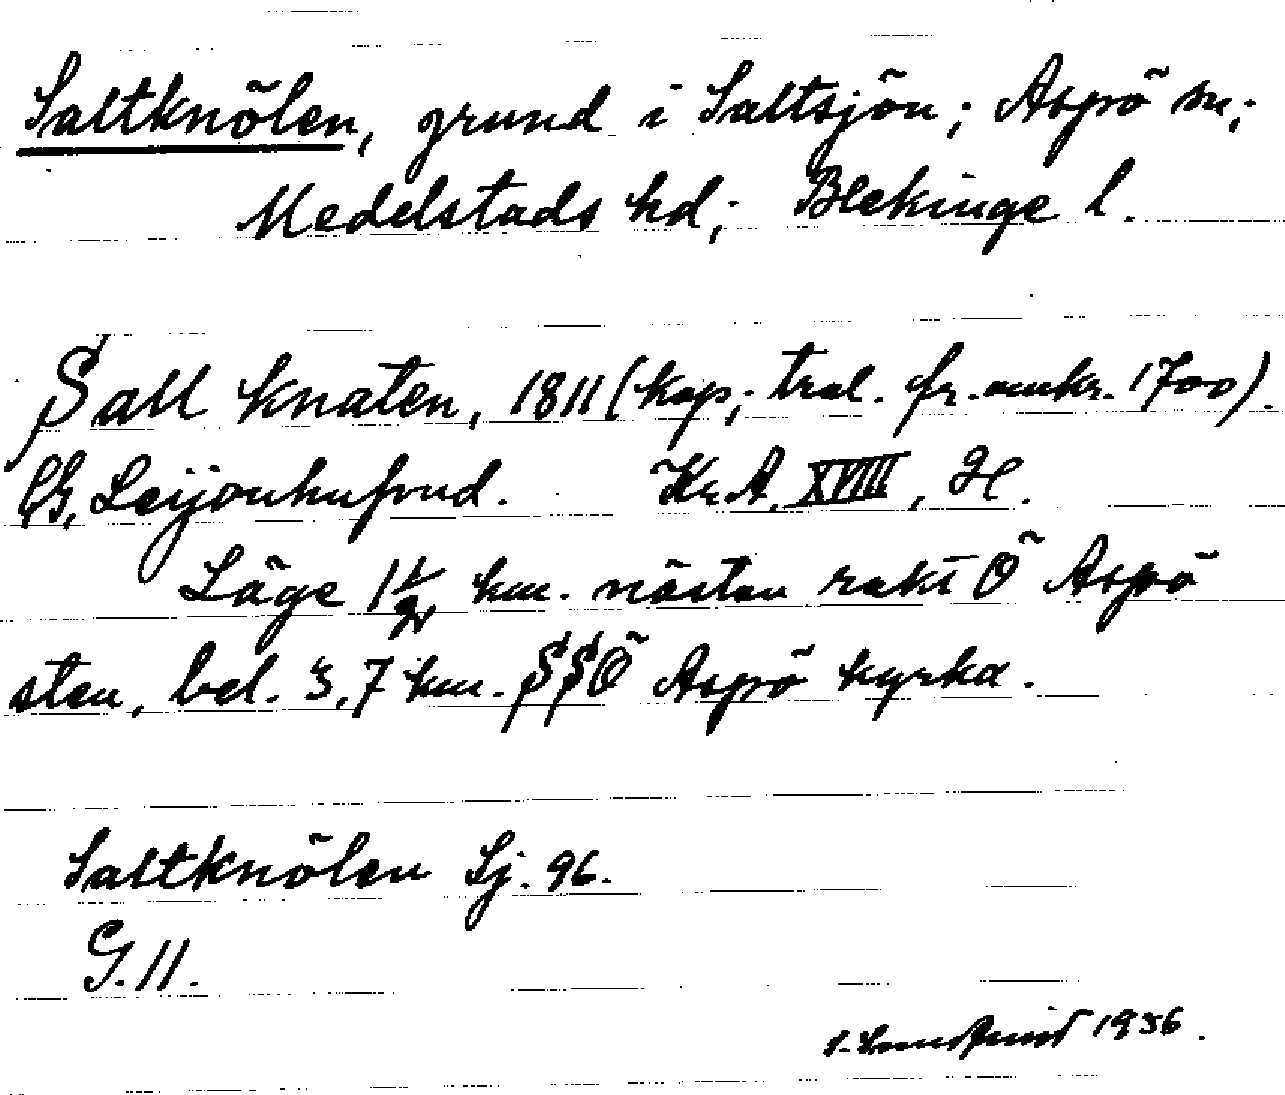 Saltknölen, grund i Saltsjön; Aspö sn;
Medelstads hd; Blekinge l.
Sall Knaten, 1811 (kop; tral. fr. omkr. 1700).
CG, Leijonhufvud. Kr.A. XVIII, H.
Läge 1 1/2 km. nästan rakt Ö Aspö
sten, bel. 3,7 km. SSÖ Aspö kyrka.
Saltknölen Sj. 96.
G. 11.
S. Lundqvist 1936.